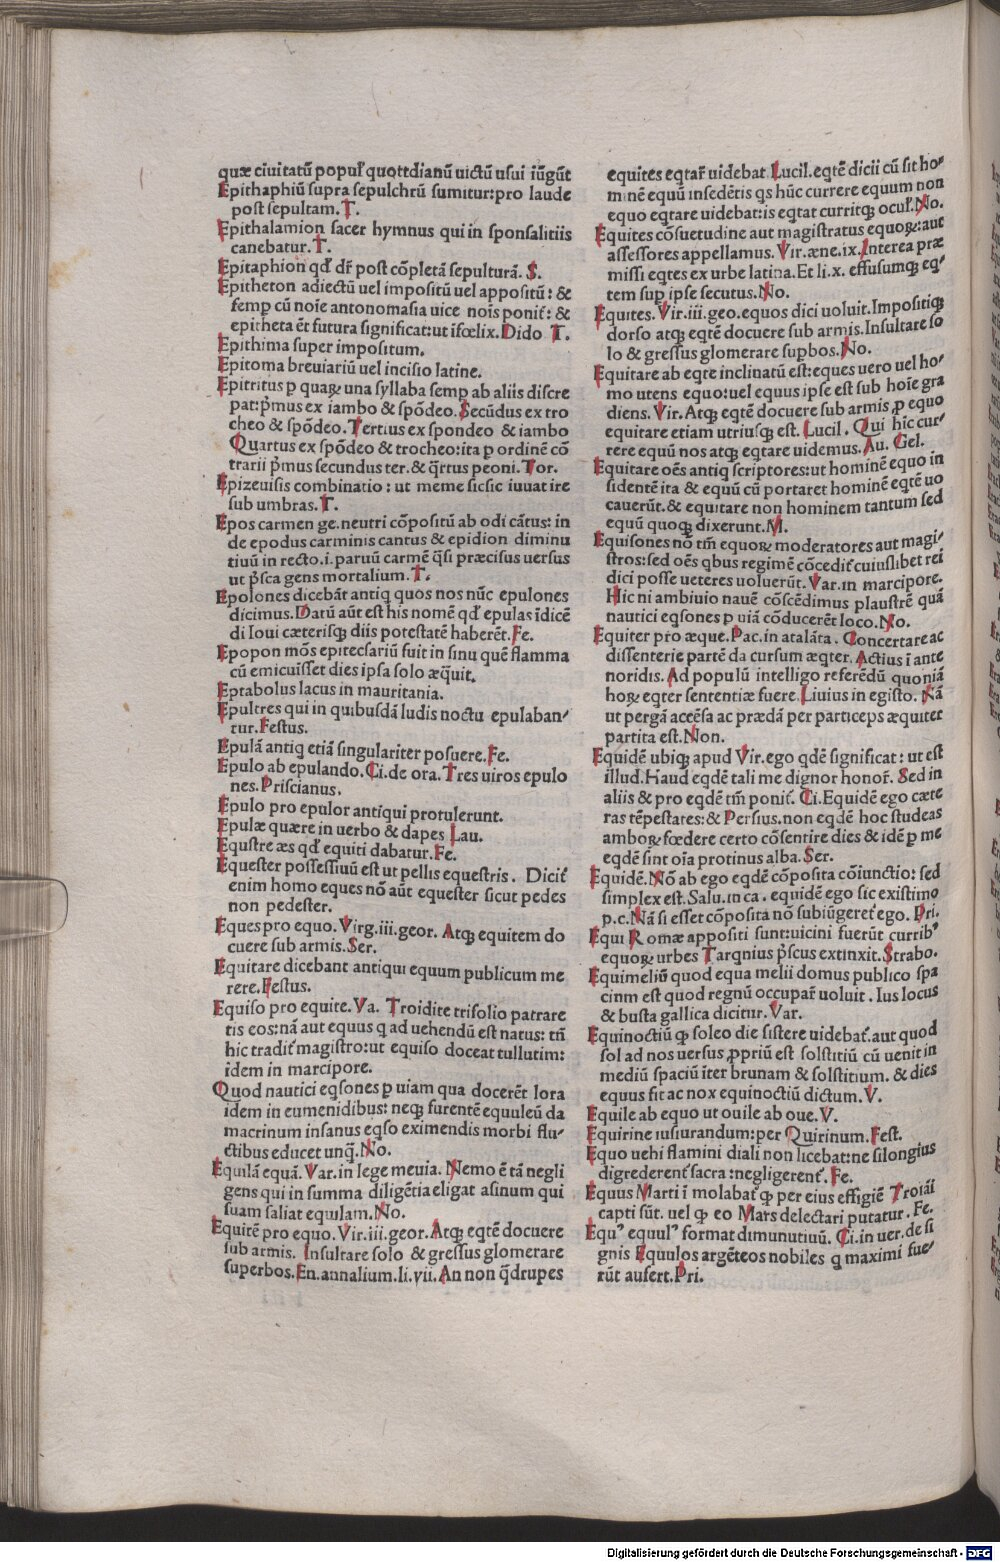 quæ ciuitatū popul᷒ quottdianū uictū usui iūgūt
Epithaphiū supra sepulchrū sumitur:pro laude
post sepultam. T.
Epithalamion sacer hymnus qui in sponsalitiis
canebatur. T.
Epitaphion qđ dr̄ post cōpletā sepulturā. S.
Epitheton adiectū uel impositū uel appositū: &
semꝑ cū noīe antonomasia uice nois̄ ponit᷒: &
epitheta ēt futura significat:ut īfœlix. Dido T.
Epithima super impositum.
Epitoma breuiariū uel incisio latine.
Epitritus ꝑ quaꝝ una syllaba semꝑ ab aliis discre
pat:p̄mus ex iambo & spōdeo. Secūdus ex tro
cheo & spōdeo. Tertius ex spondeo & iambo
Quartus ex spōdeo & trocheo:ita ꝑ ordinē cō
trarii p̄mus secundus ter. & q̄rtus peoni. Tor.
Epizeuisis combinatio: ut meme sicsic iuuat ire
sub umbras. T.
Epos carmen ge.neutri cōpositū ab odi cātus: in
de epodus carminis cantus & epidion diminu
tiuū in recto.i.paruū carmē q̄si præcisus uersus
ut p̄sca gens mortalium. T.
Epolones dicebāt antiq̄ quos nos nūc epulones
dicimus. Datū aūt est his nomē qđ epulas īdicē
di Ioui cæterisqꝫ diis potestatē haberēt. Fe.
Epopon mōs epitecsariū fuit in sinu quē flamma
cū emicuisset dies ipsa solo æq̄uit.
Eptabolus lacus in mauritania.
Epultres qui in quibusdā ludis noctu epulaban⸗
tur. Festus.
Epulā antiq̄ etiā singulariter posuere. Fe.
Epulo ab epulando. Ci.de ora. Tres uiros epulo
nes. Priscianus.
Epulo pro epulor antiqui protulerunt.
Epulæ quære in uerbo & dapes Lau.
Equstre æs qđ equiti dabatur. Fe.
Equester possessiuū est ut pellis equestris. Dicit᷒
enim homo eques nō aūt equester sicut pedes
non pedester.
Eques pro equo. Virg.iii.geor. Atqꝫ equitem do
cuere sub armis. Ser.
Equitare dicebant antiqui equum publicum me
rere. Festus.
Equiso pro equite. Va. Troidite trisolio patrare
tis eos:nā aut equus q̄ ad uehendū est natus: tm̄
hic tradit᷒ magistro:ut equiso doceat tullutim:
idem in marcipore.
Quod nautici eq̄sones ꝑ uiam qua docerēt lora
idem in eumenidibus: neqꝫ furentē equuleū da
macrinum insanus eq̄so eximendis morbi flu⸗
ctibus educet unq̄. No.
Equilā equā. Var.in lege meuia. Nemo ē tā negli
gens qui in summa diligētia eligat asinum qui
suam saliat equilam. No.
Equitē pro equo. Vir.iii.geor. Atqꝫ eq̄tē docuere
sub armis. Insultare solo & gressus glomerare
superbos. En.annalium.li.vii. An non q̄drupes
equites eq̄tar᷒ uidebat Lucil. eq̄tē dicii cū sit ho⸗
minē equū insedētis q̄s hūc currere equum non
equo eq̄tare uidebat:is eq̄tat curritqꝫ ocul᷒. No.
Equites cōsuetudine aut magistratus equoꝝ:aut
assessores appellamus. Vir.æne.ix. Interea præ
missi eq̄tes ex urbe latina. Et li.x. effusumqꝫ eq̄⸗
tem suꝑ ipse secutus. No.
Equites. Vir.iii.geo.equos dici uoluit. Impositiqꝫ
dorso atqꝫ eq̄tē docuere sub armis. Insultare so
lo & gressus glomerare suꝑbos. No.
Equitare ab eq̄te inclinatū est:eques uero uel ho⸗
mo utens equo:uel equus ipse est sub hoīe gra
diens. Vir. Atqꝫ eq̄tē docuere sub armis ꝓ equo
equitare etiam utriusqꝫ est. Lucil. Qui hic cur⸗
rere equū nos atqꝫ eq̄tare uidemus. Au. Gel.
Equitare oēs antiq̄ scriptores:ut hominē equo in
sidentē ita & equū cū portaret hominē eq̄tē uo
cauerūt. & equitare non hominem tantum sed
equū quoqꝫ dixerunt. M.
Equisones nō tm̄ equoꝝ moderatores aut magi⸗
stros:sed oēs q̄bus regimē cōcedit᷒ cuiuslibet rei
dici posse ueteres uoluerūt. Var.in marcipore.
Hic ni ambiuio nauē cōscēdimus plaustrē quā
nautici eq̄sones ꝑ uiā cōducerēt loco. No.
Equiter pro æque. Pac.in atalāta. Concertare ac
dissenterie partē da cursum æq̄ter. Actius ī ante
noridis. Ad populū intelligo referēdū quoniā
hoꝝ eq̄ter sententiæ fuere. Liuius in egisto. Nā
ut pergā accēsa ac prædā per particeps æquiter
partita est. Non.
Equidē ubiqꝫ apud Vir.ego qdē significat: ut est
illud. Haud eqdē tali me dignor honor᷒. Sed in
aliis & pro eqdē tm̄ ponit᷒. Ci. Equidē ego cæte
ras tēpestates:& Persius.non eqdē hoc studeas
amboꝝ fœdere certo cōsentire dies & idē ꝑ me
eqdē sint oīa protinus alba. Ser.
Equidē. Nō ab ego eqdē cōposita cōiunctio: sed
simplex est. Salu.in ca. equidē ego sic existimo
p.c. Nā si esset cōposita nō subiūgeret᷒ ego. Pri.
Equi Romæ appositi sunt:uicini fuerūt currib᷒
equoꝝ urbes Tarqnius p̄scus extinxit. Strabo.
Equimeliū quod equa melii domus publico spa
cinm est quod regnū occupar᷒ uoluit. Ius locus
& busta gallica dicitur. Var.
Equinoctiū q̄ soleo die sistere uidebat᷒.aut quod
sol ad nos uersus ꝓpriū est solstitiū cū uenit in
mediū spaciū īter brunam & solstitium. & dies
equus fit ac nox equinoctiū dictum. V.
Equile ab equo ut ouile ab oue. V.
Equirine iusiurandum:per Quirinum. Fest.
Equo uehi flamini diali non licebat:ne silongius
digrederent᷒ sacra:negligerent᷒. Fe.
Equus Marti ī molabat᷒ ꝙ per eius effigiē Troiāi
capti sūt. uel ꝙ eo Mars delectari putatur. Fe.
Equ᷒ equul᷒ format dimunutiuū. Ci.in uer.de si
gnis Equulos argēteos nobiles q̄ maximi fue⸗
rūt aufert. Pri.
Digitalisierung gefördert durch die Deutsche Forschungsgemeinschaft - DFG